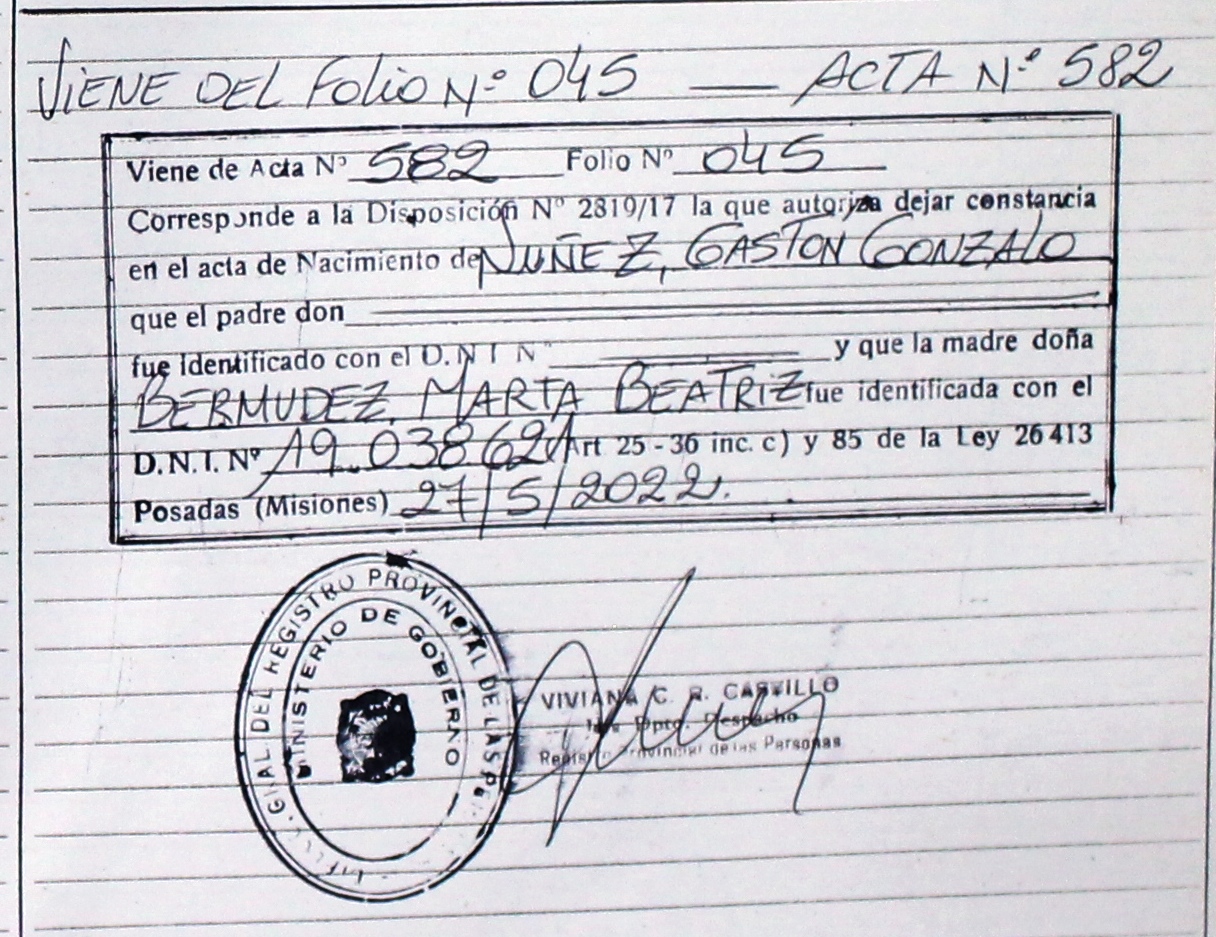 VIENE DEL FOLIO N° 045 — ACTA N° 582
Viene de Acta N° 582 Folio N° 045
Corresponde a la Disposición N° 2819/17 la que autoriza dejar constancia
en el acta de Nacimiento de NUÑEZ, GASTON GONZALO
que el padre don
fue identificado con el D.N.I N° y que la madre doña
BERMUDEZ, MARTA BEATRIZ fue identificada con el
D.N.I. N° 19.038621 (Art 25 - 36 inc. c) y 85 de la Ley 26413
Posadas (Misiones) 27/5/2022.
GRAL. DEL REGISTRO PROVINCIAL DE LAS PE
MINISTERIO DE GOBERNO
VIVIANA C. R. CARVILLO
Dpto. Despacho
Registro Provincial de las Personas